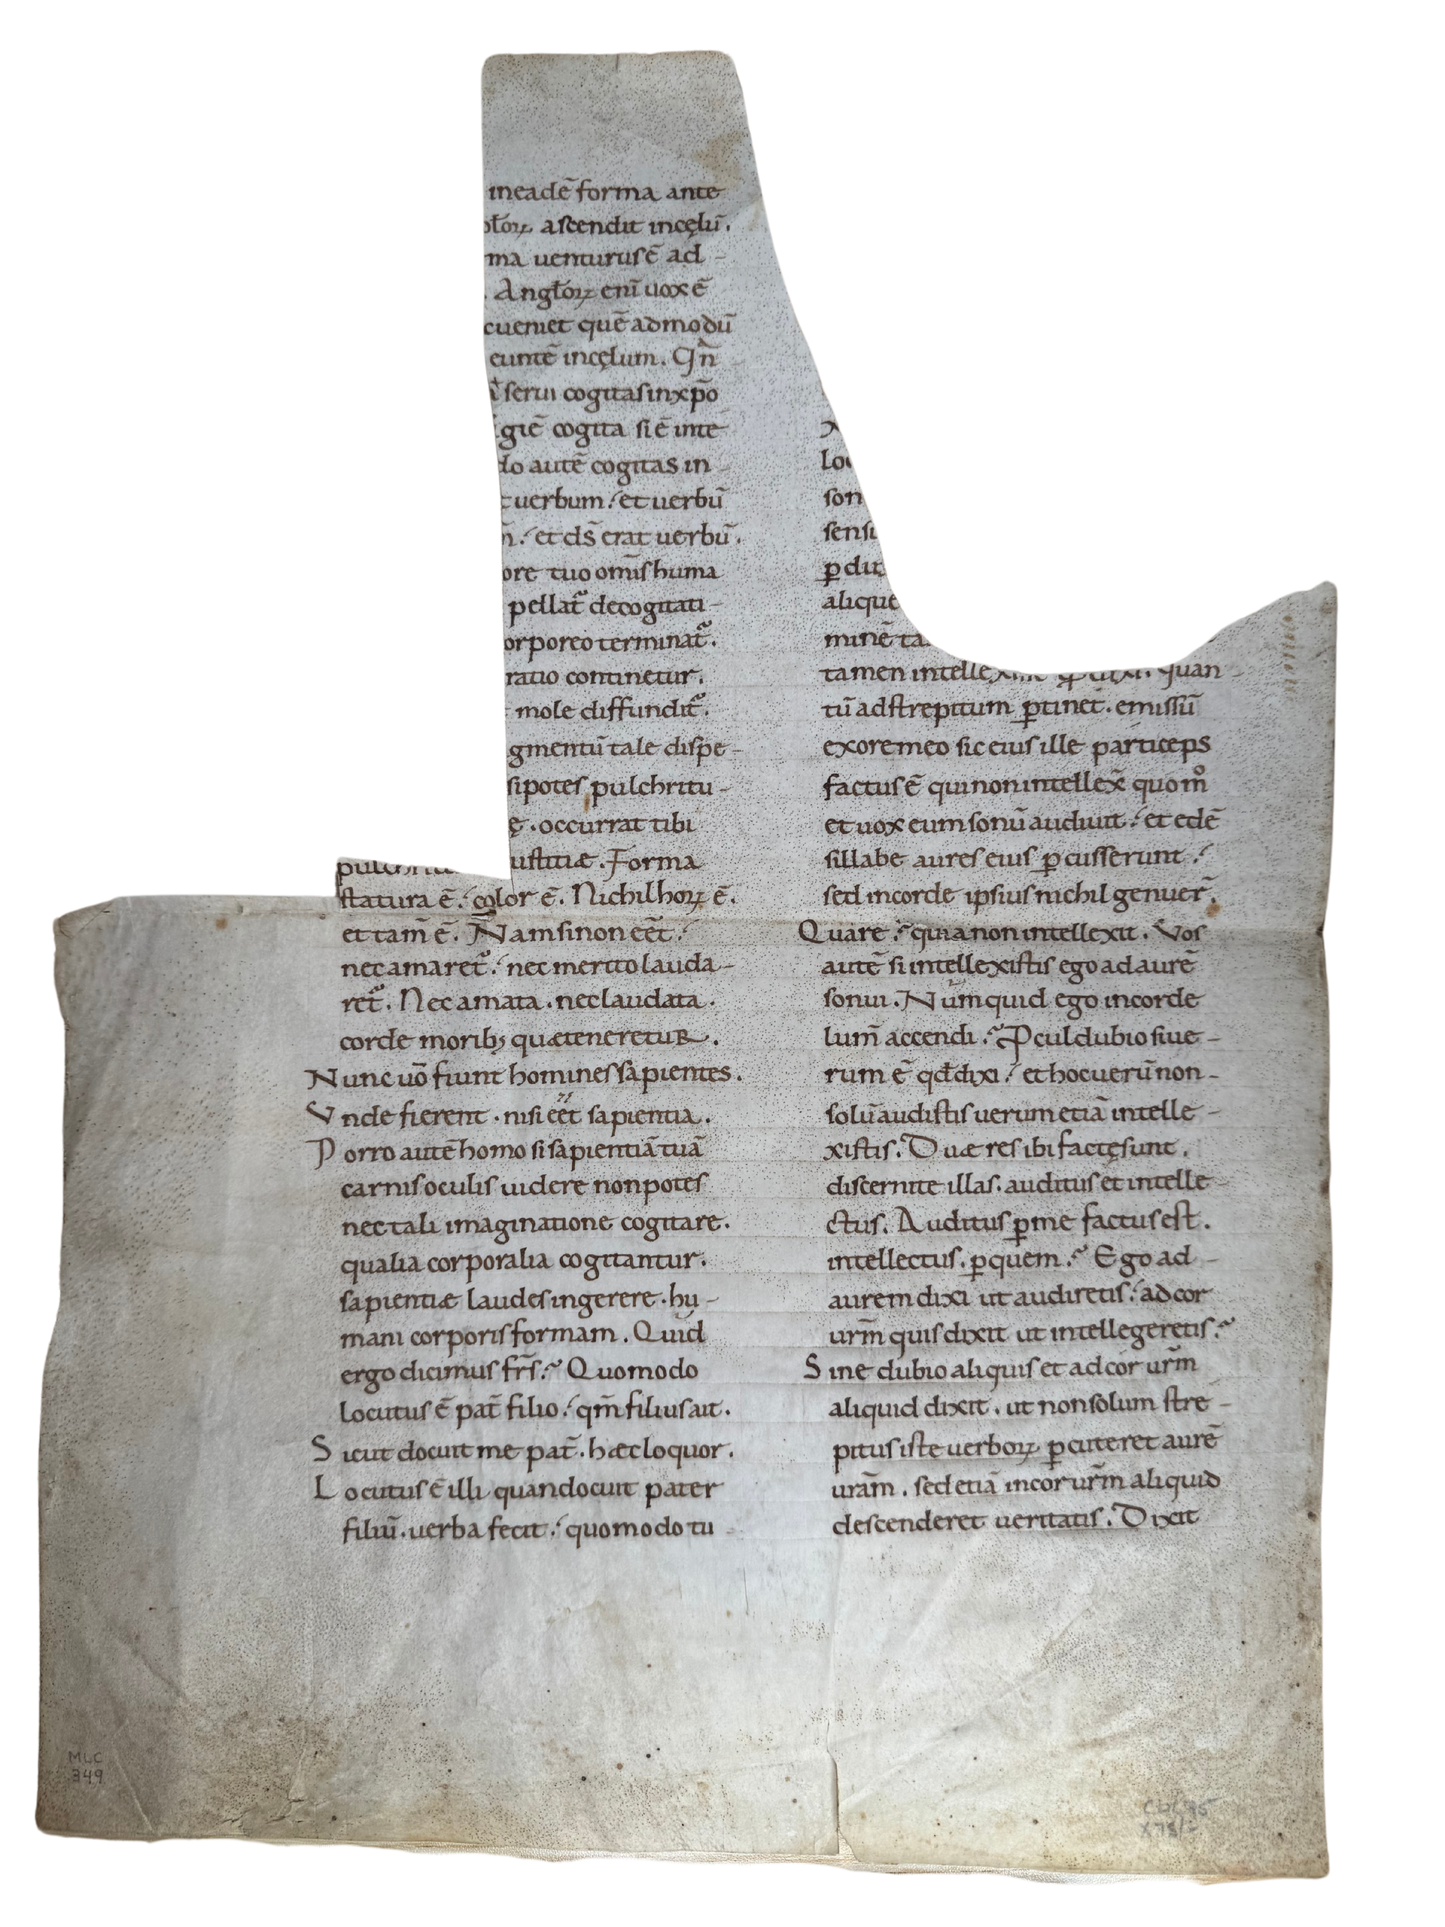 ineadē forma ante
ascendit incęlū.
ma uenturus ē ad-
. Angłoꝝ eni uox ē
ueniet quē admodū
euntē incęlum. Qn̄
serui cogitas inxp̄o
giē cogita si ē inte
do autē cogitas in-
uerbum; et uerbū
et ds̄ erat uerbū.
ore tuo om̄is huma
pellat᷑ decogitati-
orporeo terminat᷑.
ratio continetur.
mole diffundit᷑.
gmentū tale dispe-
si potes pulchritu-
ę. occurrat tibi
ustitiæ. Forma
statura ē; color ē. Nichil hoꝝ ē.
et tam̄ ē. Nam si non eēt;
nec amaret᷑; nec merito lauda-
ret᷑. Nec amata. nec laudata.
corde moribꝫ quæ teneretur.
Nunc uō fiunt homines sapientes.
Vnde fierent. nisi eēt sapientia.
Porro autē homo si sapientiā tuā
carnis oculis uidere non potes
nec tali imaginatione cogitare.
qualia corporalia cogitantur.
sapientiæ laudes ingerere. hu-
mani corporis formam. Quid
ergo dicimus frs̄? Quomodo
locutus ē pat̄ filio; qm̄ filius ait.
Sicut docuit me pat̄. hæc loquor.
Locutus ē illi quan docuit pater
filiū. uerba fecit; quomodo tu
lo
son
sens
ꝑdit
alique
minē ta
tamen quan-
tū adstrepitum ꝑtinet. emissū
exore meo sic eius ille particeps
factus ē qui non intellex̄ quom̊
et uox eum sonū audiuit; et edē
sillabe aures eius ꝑcusserunt;
sed incorde ipsius nichil genuer̄.
Quare? quia non intellexit. Vos
autē si intellexistis ego ad aurē
sonui. Numquid ego incorde
lum̄ accendi? Ꝓculdubio si ue-
rum ē qđ dixi; et hoc uerū non-
solū audistis uerum etiā intelle-
xistis. Duæ res ibi factę sunt.
discernite illas. auditus et intelle-
ctus. Auditus ꝑ me factus est.
intellectus. ꝑ quem? Ego ad
aurem dixi ut audiretis; ad cor
urm̄ quis dixit ut intellegeretis?
Sine dubio aliquis et ad cor urm̄
aliquid dixit. ut non solum stre-
pitus iste uerboꝝ ꝑcuteret aurē
urām. sed etiā incor urm̄ aliquid
descenderet ueritatis. Dixit
MLC
349